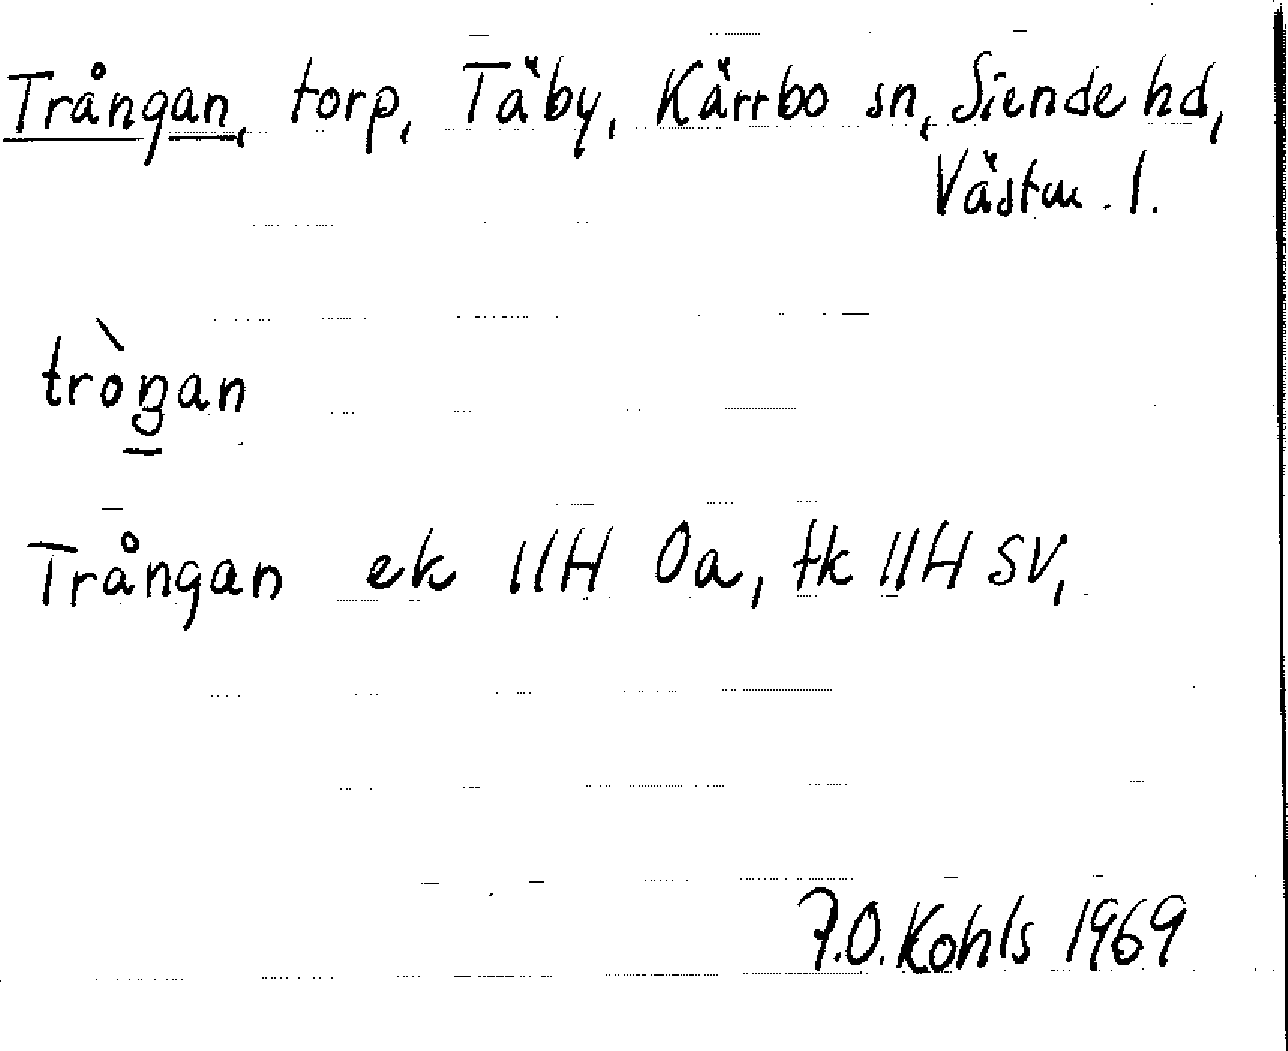 Trångan, torp, Täby, Kärrbo sn, Siende hd,
Västm. l.
tròŋan
Trångan ek 11H 0a, tk 11H SV,
F.O. Kohls 1969